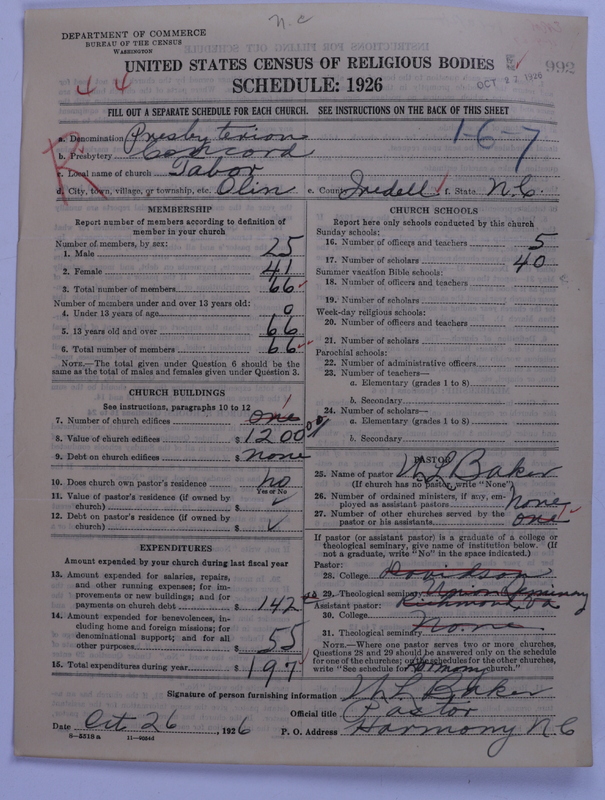 N.C
DEPARTMENT OF COMMERCE
BUREAU OF THE CENSUS
WASHINGTON
UNITED STATES CENSUS OF RELIGIOUS BODIES
SCHEDULE: 1926
OCT 27 1926
992
4 4
FILL OUT A SEPARATE SCHEDULE FOR EACH CHURCH. SEE INSTRUCTIONS ON THE BACK OF THIS SHEET
a. Denomination Presbyterion
1-6-7
b. Presbytery Concord
c. Local name of church Tabor
d. City, town, village, or township, etc. Olin e. County Iredell f. State N.C.
MEMBERSHIP
Report number of members according to definition of
member in your church
Number of members, by sex:
1. Male 25
2. Female 41
3. Total number of members 66
Number of members under and over 13 years old:
4. Under 13 years of age 0
5. 13 years old and over 66
6. Total number of members 66
NOTE.—The total given under Question 6 should be the
same as the total of males and females given under Question 3.
CHURCH BUILDINGS
See instructions, paragraphs 10 to 12
7. Number of church edifices one 1
8. Value of church edifices $ 1200 00
9. Debt on church edifices $ none
10. Does church own pastor's residence? no
Yes or No
11. Value of pastor's residence (if owned by
church) $
12. Debt on pastor's residence (if owned by
church) $
EXPENDITURES
Amount expended by your church during last fiscal year
13. Amount expended for salaries, repairs,
and other running expenses; for im-
provements or new buildings; and for
payments on church debt $ 142
14. Amount expended for benevolences, in-
cluding home and foreign missions; for
denominational support; and for all
other purposes $ 55
15. Total expenditures during year $ 197
CHURCH SCHOOLS
Report here only schools conducted by this church
Sunday schools:
16. Number of officers and teachers 5
17. Number of scholars 40
Summer vacation Bible schools:
18. Number of officers and teachers
19. Number of scholars
Week-day religious schools:
20. Number of officers and teachers
21. Number of scholars
Parochial schools:
22. Number of administrative officers
23. Number of teachers—
a. Elementary (grades 1 to 8)
b. Secondary
24. Number of scholars—
a. Elementary (grades 1 to 8)
b. Secondary
PASTOR
25. Name of pastor W L Baker
(If church has no pastor, write "None")
26. Number of ordained ministers, if any, em-
ployed as assistant pastors None
27. Number of other churches served by the
pastor or his assistants one 1
If pastor (or assistant pastor) is a graduate of a college or
theological seminary, give name of institution below. (If
not a graduate, write "No" in the space indicated.)
Pastor:
28. College Davidson
29. Theological seminary Union Seminary
Assistant pastor: Richmond, Va
30. College
31. Theological seminary None
NOTE.—Where one pastor serves two or more churches,
Questions 28 and 29 should be answered only on the schedule
for one of the churches; on the schedules for the other churches,
write "See schedule for Harmony church."
Signature of person furnishing information W L Baker
Official title Pastor
Date Oct. 26, 1926 P. O. Address Harmony N C
8—5518 a